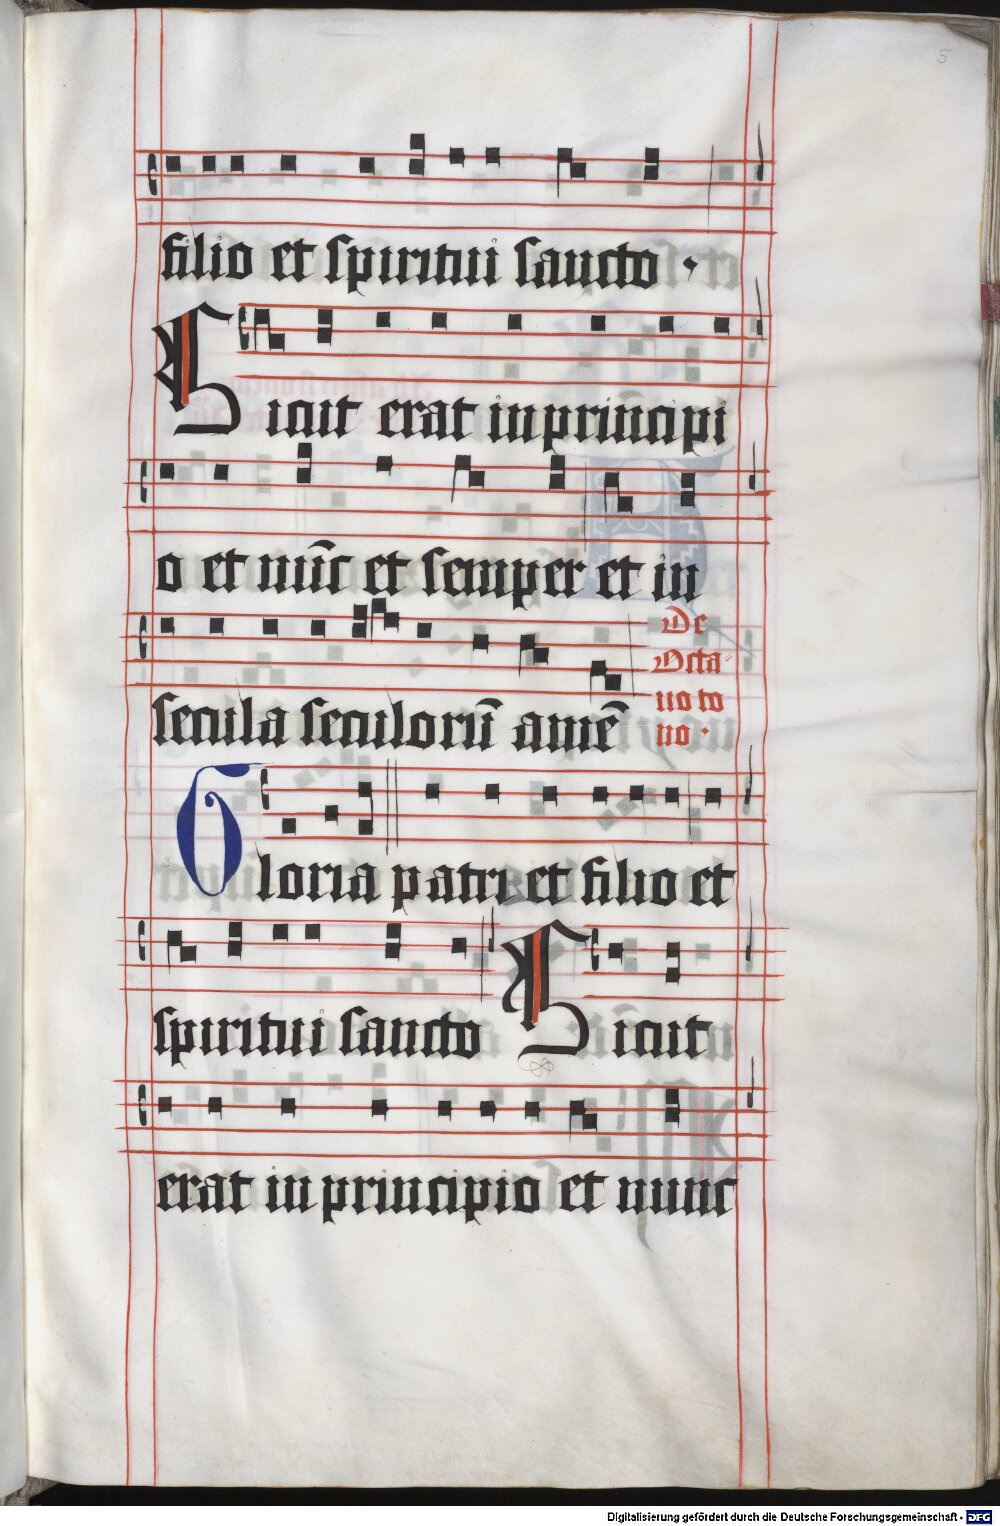 5
filio et spiritui sancto ·
Sicut erat in prīncipi
o et nūc et semper et in
secula seculorū amē
De
Octa-
uo to
no ·
Gloria patri et filio et
spiritui sancto Sicut
erat in principio et nunc
Digitalisierung gefördert durch die Deutsche Forschungsgemeinschaft - DFG